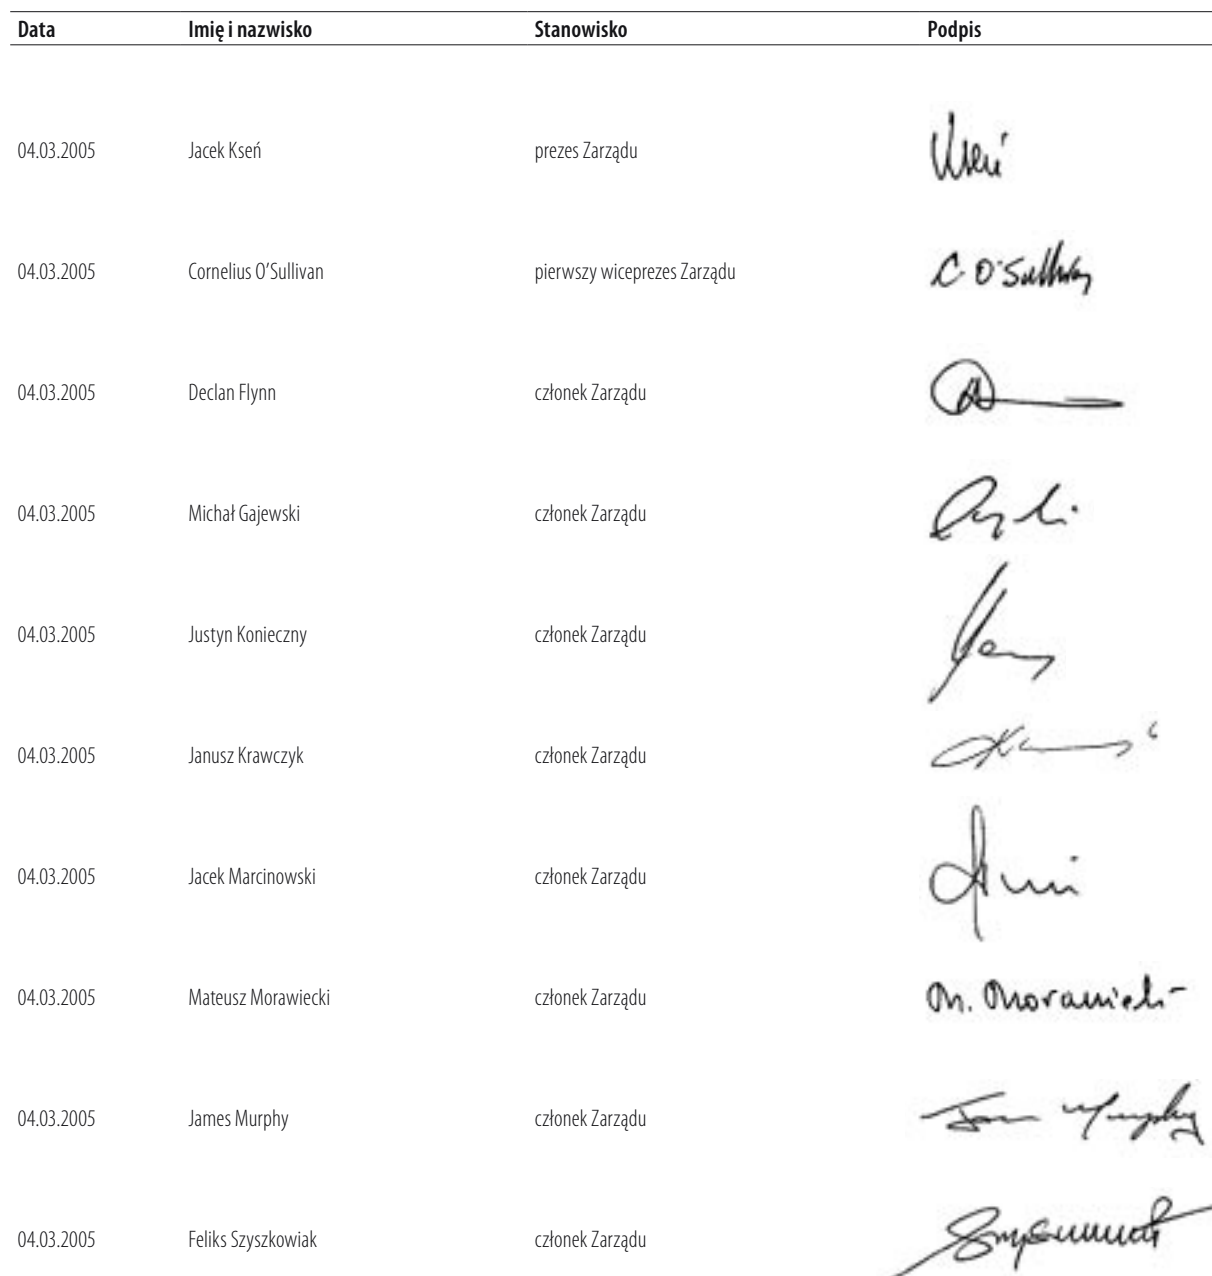 Data Imię i nazwisko Stanowisko Podpis
04.03.2005 Jacek Kseń prezes Zarządu Kseń
04.03.2005 Cornelius O’Sullivan pierwszy wiceprezes Zarządu C. O'Sullivan
04.03.2005 Declan Flynn członek Zarządu
04.03.2005 Michał Gajewski członek Zarządu
04.03.2005 Justyn Konieczny członek Zarządu
04.03.2005 Janusz Krawczyk członek Zarządu
04.03.2005 Jacek Marcinowski członek Zarządu
04.03.2005 Mateusz Morawiecki członek Zarządu M. Morawiecki
04.03.2005 James Murphy członek Zarządu James Murphy
04.03.2005 Feliks Szyszkowiak członek Zarządu